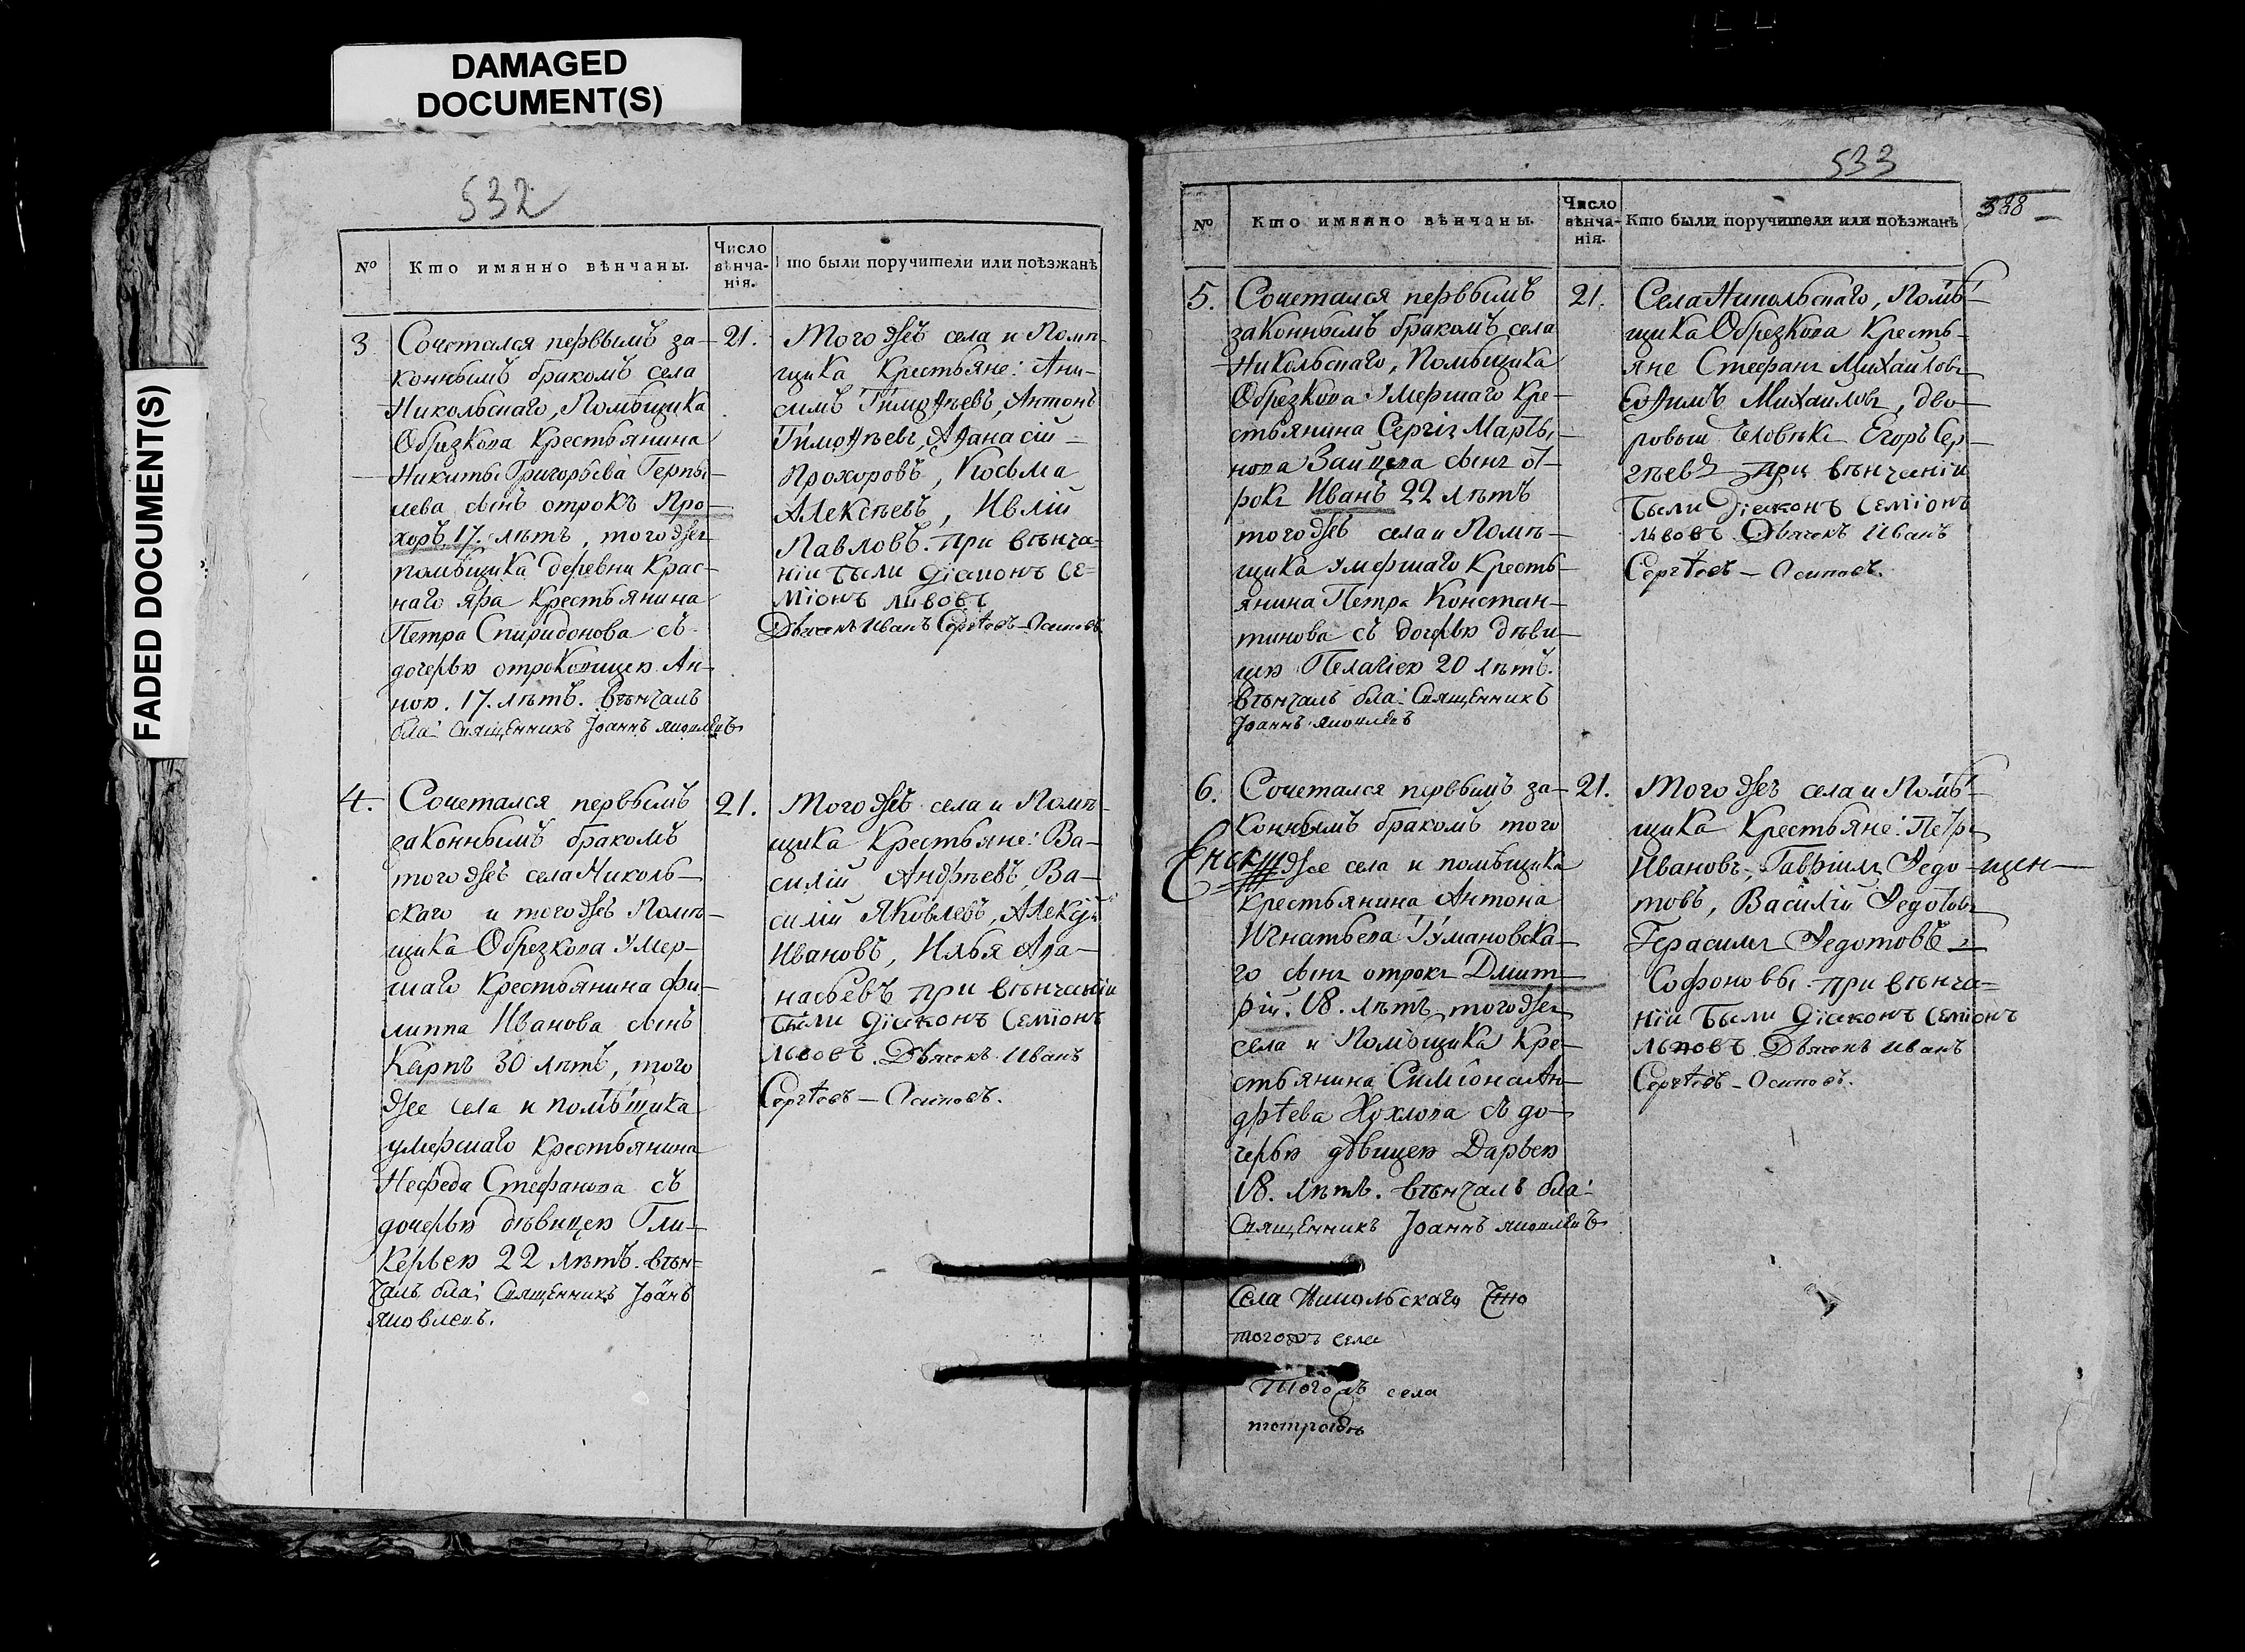 DAMAGED
DOCUMENT(S)
FADED DOCUMENT(S)
532
№
Кто имянно вѣнчаны.
Число
вѣнча-
нія.
то были поручители или поѣзжанѣ
3
Сочетался первымъ за-
коннымъ бракомъ села
Никольскаго, Помѣщика
Обрезкова Крестьянина
Никиты Григорьева
сынъ отрокъ Про-
хоръ 17. лѣтъ, тогожъ
помѣщика деревни Крас-
наго яра Крестьянина
Петра Спиридонова съ
дочерью отроковицею Ан-
ною. 17. лѣтъ. вѣнчалъ
бла: Священникъ Іоаннъ Яковлевъ
21.
Тогожъ села и Помѣ-
щика Крестьяне: Ани-
симъ Тимоѳѣевъ, Антонъ
Тимоѳѣевъ, Аѳанасій
Прохоровъ, Косьма
Алексѣевъ, Ивлій
Павловъ. При вѣнча=
ніи были Діаконъ Се=
міонъ Львовъ
Дьячекъ Иванъ Сергѣевъ - Осиповъ
4.
Сочетался первымъ
законнымъ бракомъ
тогожъ села Николь-
скаго и тогожъ Помѣ-
щика Обрезкова умер-
шаго Крестьянина Фи-
липпа Иванова сынъ
Карпъ 30 лѣтъ, того
же села и помѣщика
умершаго крестьянина
Нефеда Стефанова съ
дочерью дѣвицею Гли-
керьею 22 лѣтъ. вѣн=
чалъ бла: Священникъ Іоанъ
Яковлевъ.
21.
Тогожъ села и Помѣ-
щика Крестьяне: Ва-
силій Андрѣевъ, Ва-
силій Яковлевъ, Алексѣй
Ивановъ, Илья Аѳа-
насьевъ при вѣнчаніи
были Діаконъ Семіонъ
Львовъ. Дьячекъ Иванъ
Сергѣевъ - Осиповъ.
533
388
№
Кто имянно вѣнчаны.
Число
вѣнча-
нія.
Кто были поручители или поѣзжанѣ
5.
Сочетался первымъ
законнымъ бракомъ села
Никольскаго, Помѣщика
Обрезкова умершаго Кре-
стьянина Сергія Марты-
нова Зайцева сынъ от-
рокъ Иванъ 22 лѣтъ
тогожъ села и Помѣ-
щика умершаго Кресть-
янина Петра Констан-
тинова съ дочерью дѣви-
цею Пелагіею 20 лѣтъ.
вѣнчалъ бла: Священникъ
Іоаннъ Яковлевъ
21.
Села Никольскаго, Помѣ-
щика Обрезкова Кресть-
яне Стефанъ Михайловъ
Михаиловъ, дво-
ровый человѣкъ Егоръ Сер-
гѣевъ при вѣнчаніи
были Діаконъ Семіонъ
Львовъ. Дьячекъ Иванъ
Сергѣевъ - Осиповъ.
6.
Сочетался первымъ за-
коннымъ бракомъ того
же села и помѣщика
Крестьянина Антона
Игнатьева Тумановска-
го сынъ отрокъ Дмит-
рій. 18. лѣтъ, тогожъ
села и Помѣщика Кре-
стьянина Симіона Ан-
дрѣева Хохлова съ до-
черью дѣвицею Дарьею
18. лѣтъ. вѣнчалъ бла:
Священникъ Іоаннъ Яковлевъ
21.
Тогожъ села и Помѣ-
щика Крестьяне: Петръ
Ивановъ, Гавріилъ Федо-
товъ, Василій Федотовъ
Герасимъ Федотовъ
Софоновы при вѣнча=
ніи были Діаконъ Семіонъ
Львовъ. Дьячекъ Иванъ
Сергѣевъ - Осиповъ.
щен
Села Никольскаго
тогожъ села
тогожъ села